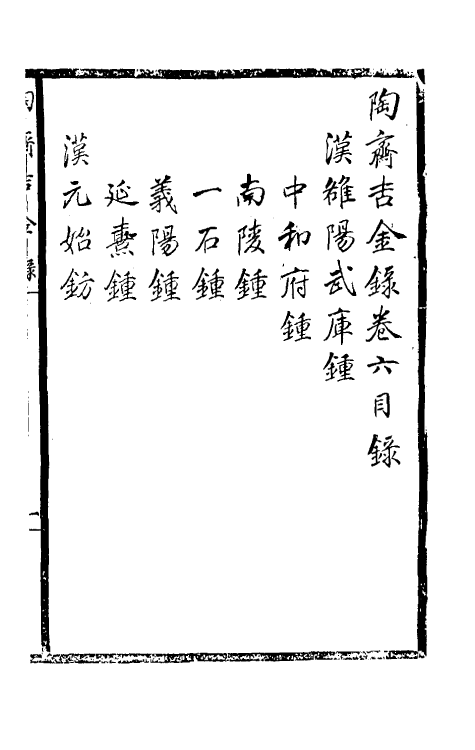 陶齋吉金錄卷六目錄
漢雒陽武庫鍾
中和府鍾
南陵鍾
一石鍾
義陽鍾
延熹鍾
漢元始鈁
陶齋吉金錄